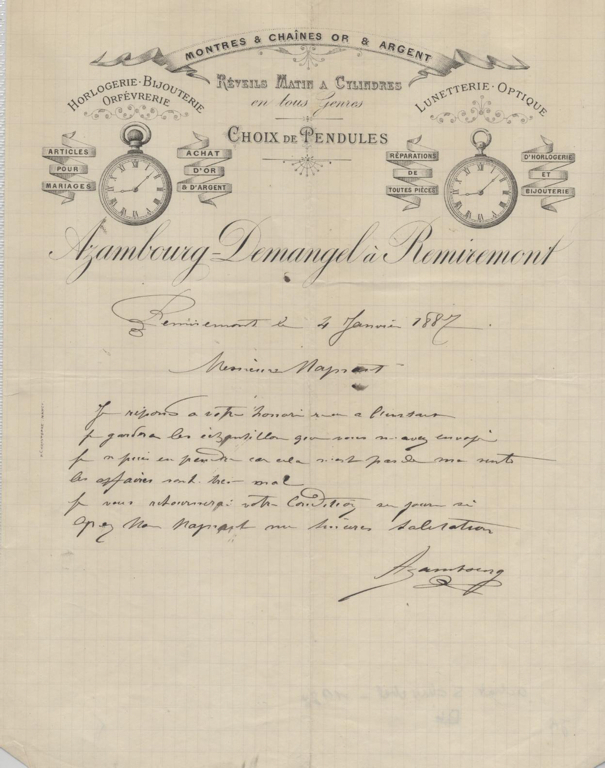 MONTRES & CHAÎNES OR & ARGENT
RÉVEILS MATIN A CYLINDRES
en tous Genres
HORLOGERIE-BIJOUTERIE
ORFÉVRERIE
LUNETTERIE-OPTIQUE
CHOIX DE PENDULES
ARTICLES
POUR
MARIAGES
ACHAT
D'OR
& D'ARGENT
RÉPARATIONS
DE
TOUTES PIÈCES
D'HORLOGERIE
ET
BIJOUTERIE
Azambourg-Demangel à Remiremont
Remiremont le 4 Janvier 1887.
Messieurs
Je réponds a votre honorée
je garderai les échantillon que vous m'avez envoyé
je n puis en prendre car cela n'est pas de ma vente
les affaires sont très mal
je vous retournerai votre Condition
mes sincères Salutation
Azambourg